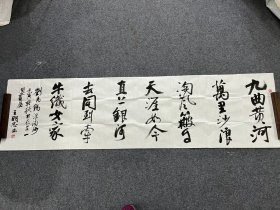 九曲黄河
萬里沙浪
淘風簸自
天涯如今
直上銀河
去同到牽
牛織女家
劉禹錫浪淘沙